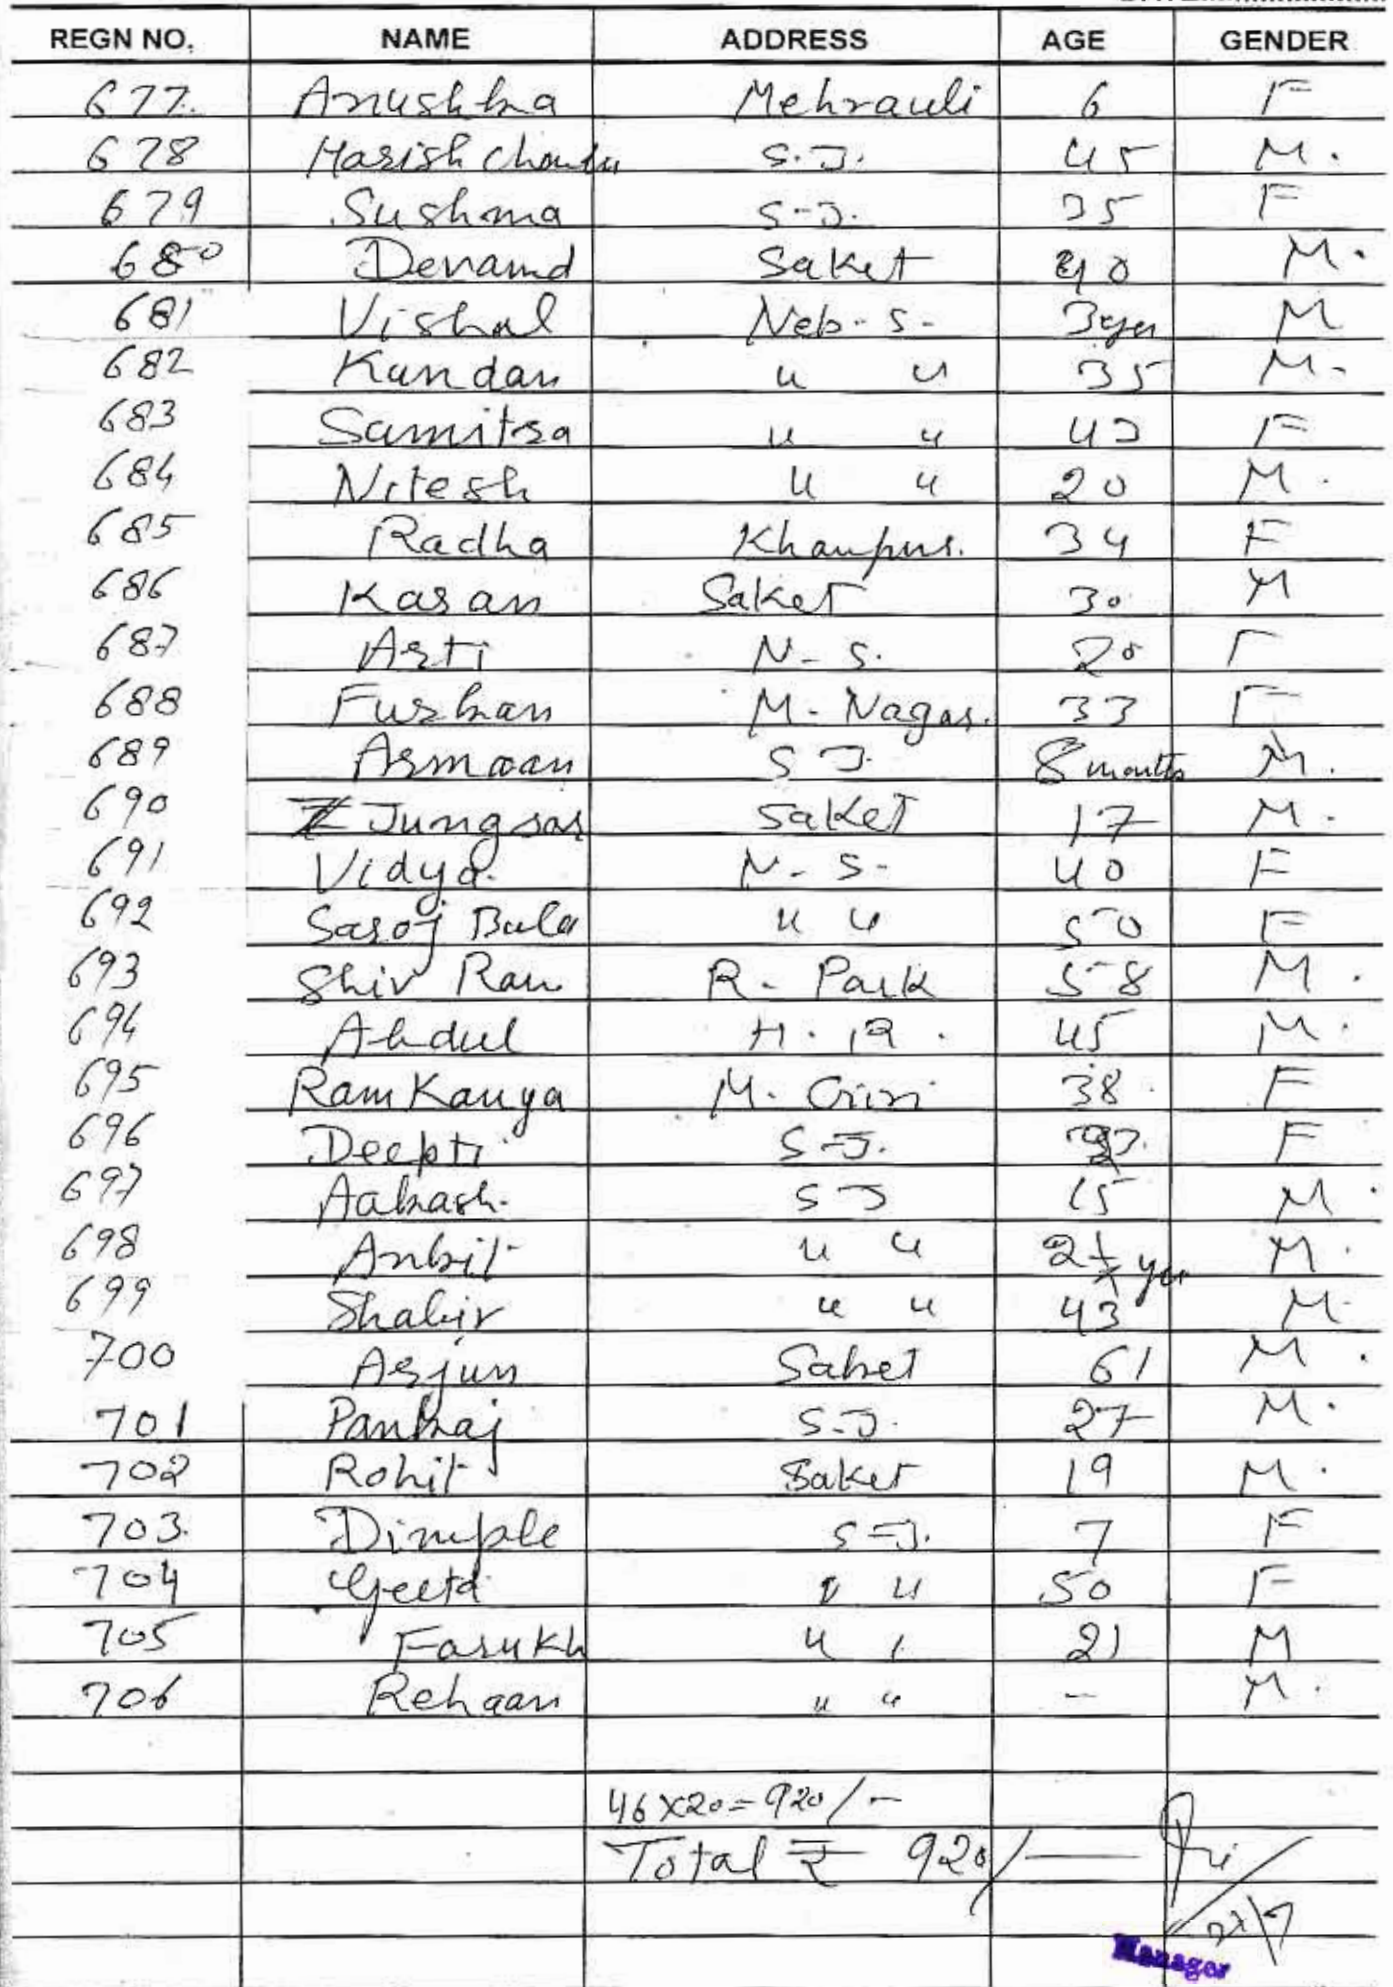 REGN NO. NAME ADDRESS AGE GENDER
677. Anushka Mehrauli 6 F
678 Harish Chander S.J. 45 M.
679 Sushma S-J. 35 F
680 Devanand Saket 40 M.
681 Vishal Neb-S- 3 yrs M
682 Kundan " " 35 M-
683 Samitra " " 43 F
684 Nitesh " " 20 M.
685 Radha Khanpur. 34 F
686 Karan Saket 30 M
687 Arti N-S. 20 F
688 Furkan M-Nagar. 33 F
689 Armaan S J. 8 months M.
690 Jungsar Saket 17 M.
691 Vidya. N-S- 40 F
692 Saroj Bala " " 50 F
693 Shiv Ram R- Park 58 M.
694 Abdul H. R. 45 M.
695 Ram Kanya M. Giri 38 F
696 Deepti S-J. F
697 Aakash. S J 15 M.
698 Ankit " " 2½ yrs M.
699 Shabir " " 43 M-
700 Arjun Saket 61 M.
701 Pankaj S-J. 27 M.
702 Rohit Saket 19 M.
703. Dimple S-J. 7 F
704 Geeta " " 50 F
705 Farukh " " 21 M
706 Rehaan " " - M.
46 x 20 = 920/-
Total ₹ 920/-
27/7
Manager